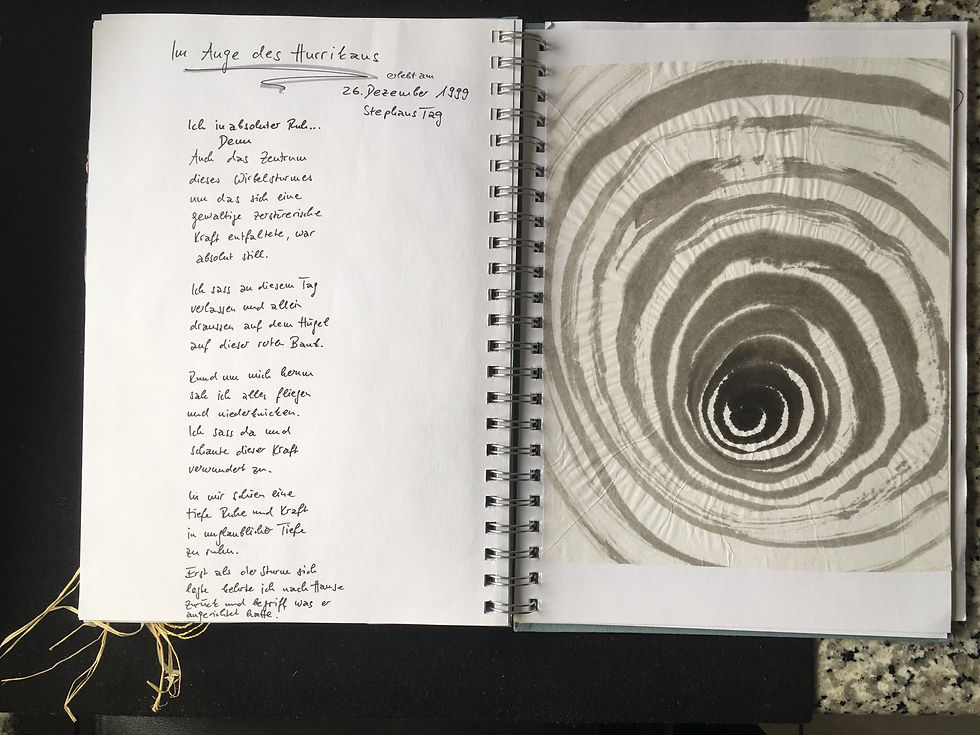 Im Auge des Hurrikans
erlebt am
26. Dezember 1999
Stephans Tag
Ich in absoluter Ruh...
Denn
Auch das Zentrum
dieses Wirbelsturmes
um das sich eine
gewaltige zerstörerische
Kraft entfaltete, war
absolut still.
Ich sass an diesem Tag
verlassen und allein
draussen auf dem Hügel
auf dieser roten Bank.
Rund um mich herum
sah ich alles fliegen
und niederknicken.
Ich sass da und
schaute dieser Kraft
verwundert zu.
In mir schien eine
tiefe Ruhe und Kraft
in unglaublicher Tiefe
zu ruhen.
Erst als der Sturm sich
legte kehrte ich nach Hause
zurück und begriff was er
angerichtet hatte.